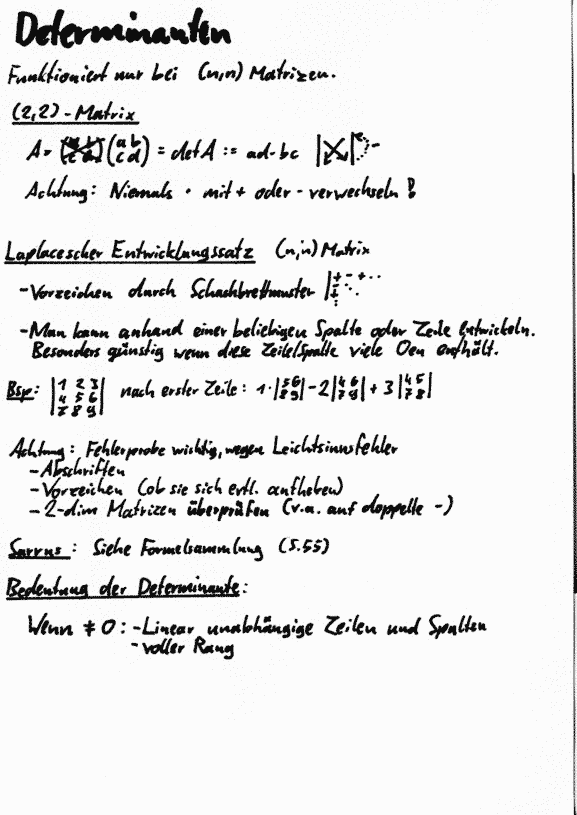 Determinanten
Funktioniert nur bei (n,n) Matrizen.
(2,2)-Matrix
A = (a b c d) = det A := ad-bc
Achtung: Niemals · mit + oder - verwechseln!
Laplacescher Entwicklungssatz (n,n) Matrix
-Vorzeichen durch Schachbrettmuster |+ - + ..
-Man kann anhand einer beliebigen Spalte oder Zeile entwickeln.
Besonders günstig wenn diese Zeile/Spalte viele 0en enthält.
Bsp: |1 2 3 4 5 6 7 8 9| nach erster Zeile: 1·|5 6 8 9| - 2|4 6 7 9| + 3|4 5 7 8|
Achtung: Fehlerprobe wichtig, wegen Leichtsinnsfehler
-Abschriften
-Vorzeichen (ob sie sich evtl. aufheben)
-2-dim Matrizen überprüfen (v.a. auf doppelte -)
Sarrus: Siehe Formelsammlung (S.55)
Bedeutung der Determinante:
Wenn ≠ 0: -Linear unabhängige Zeilen und Spalten
-voller Rang